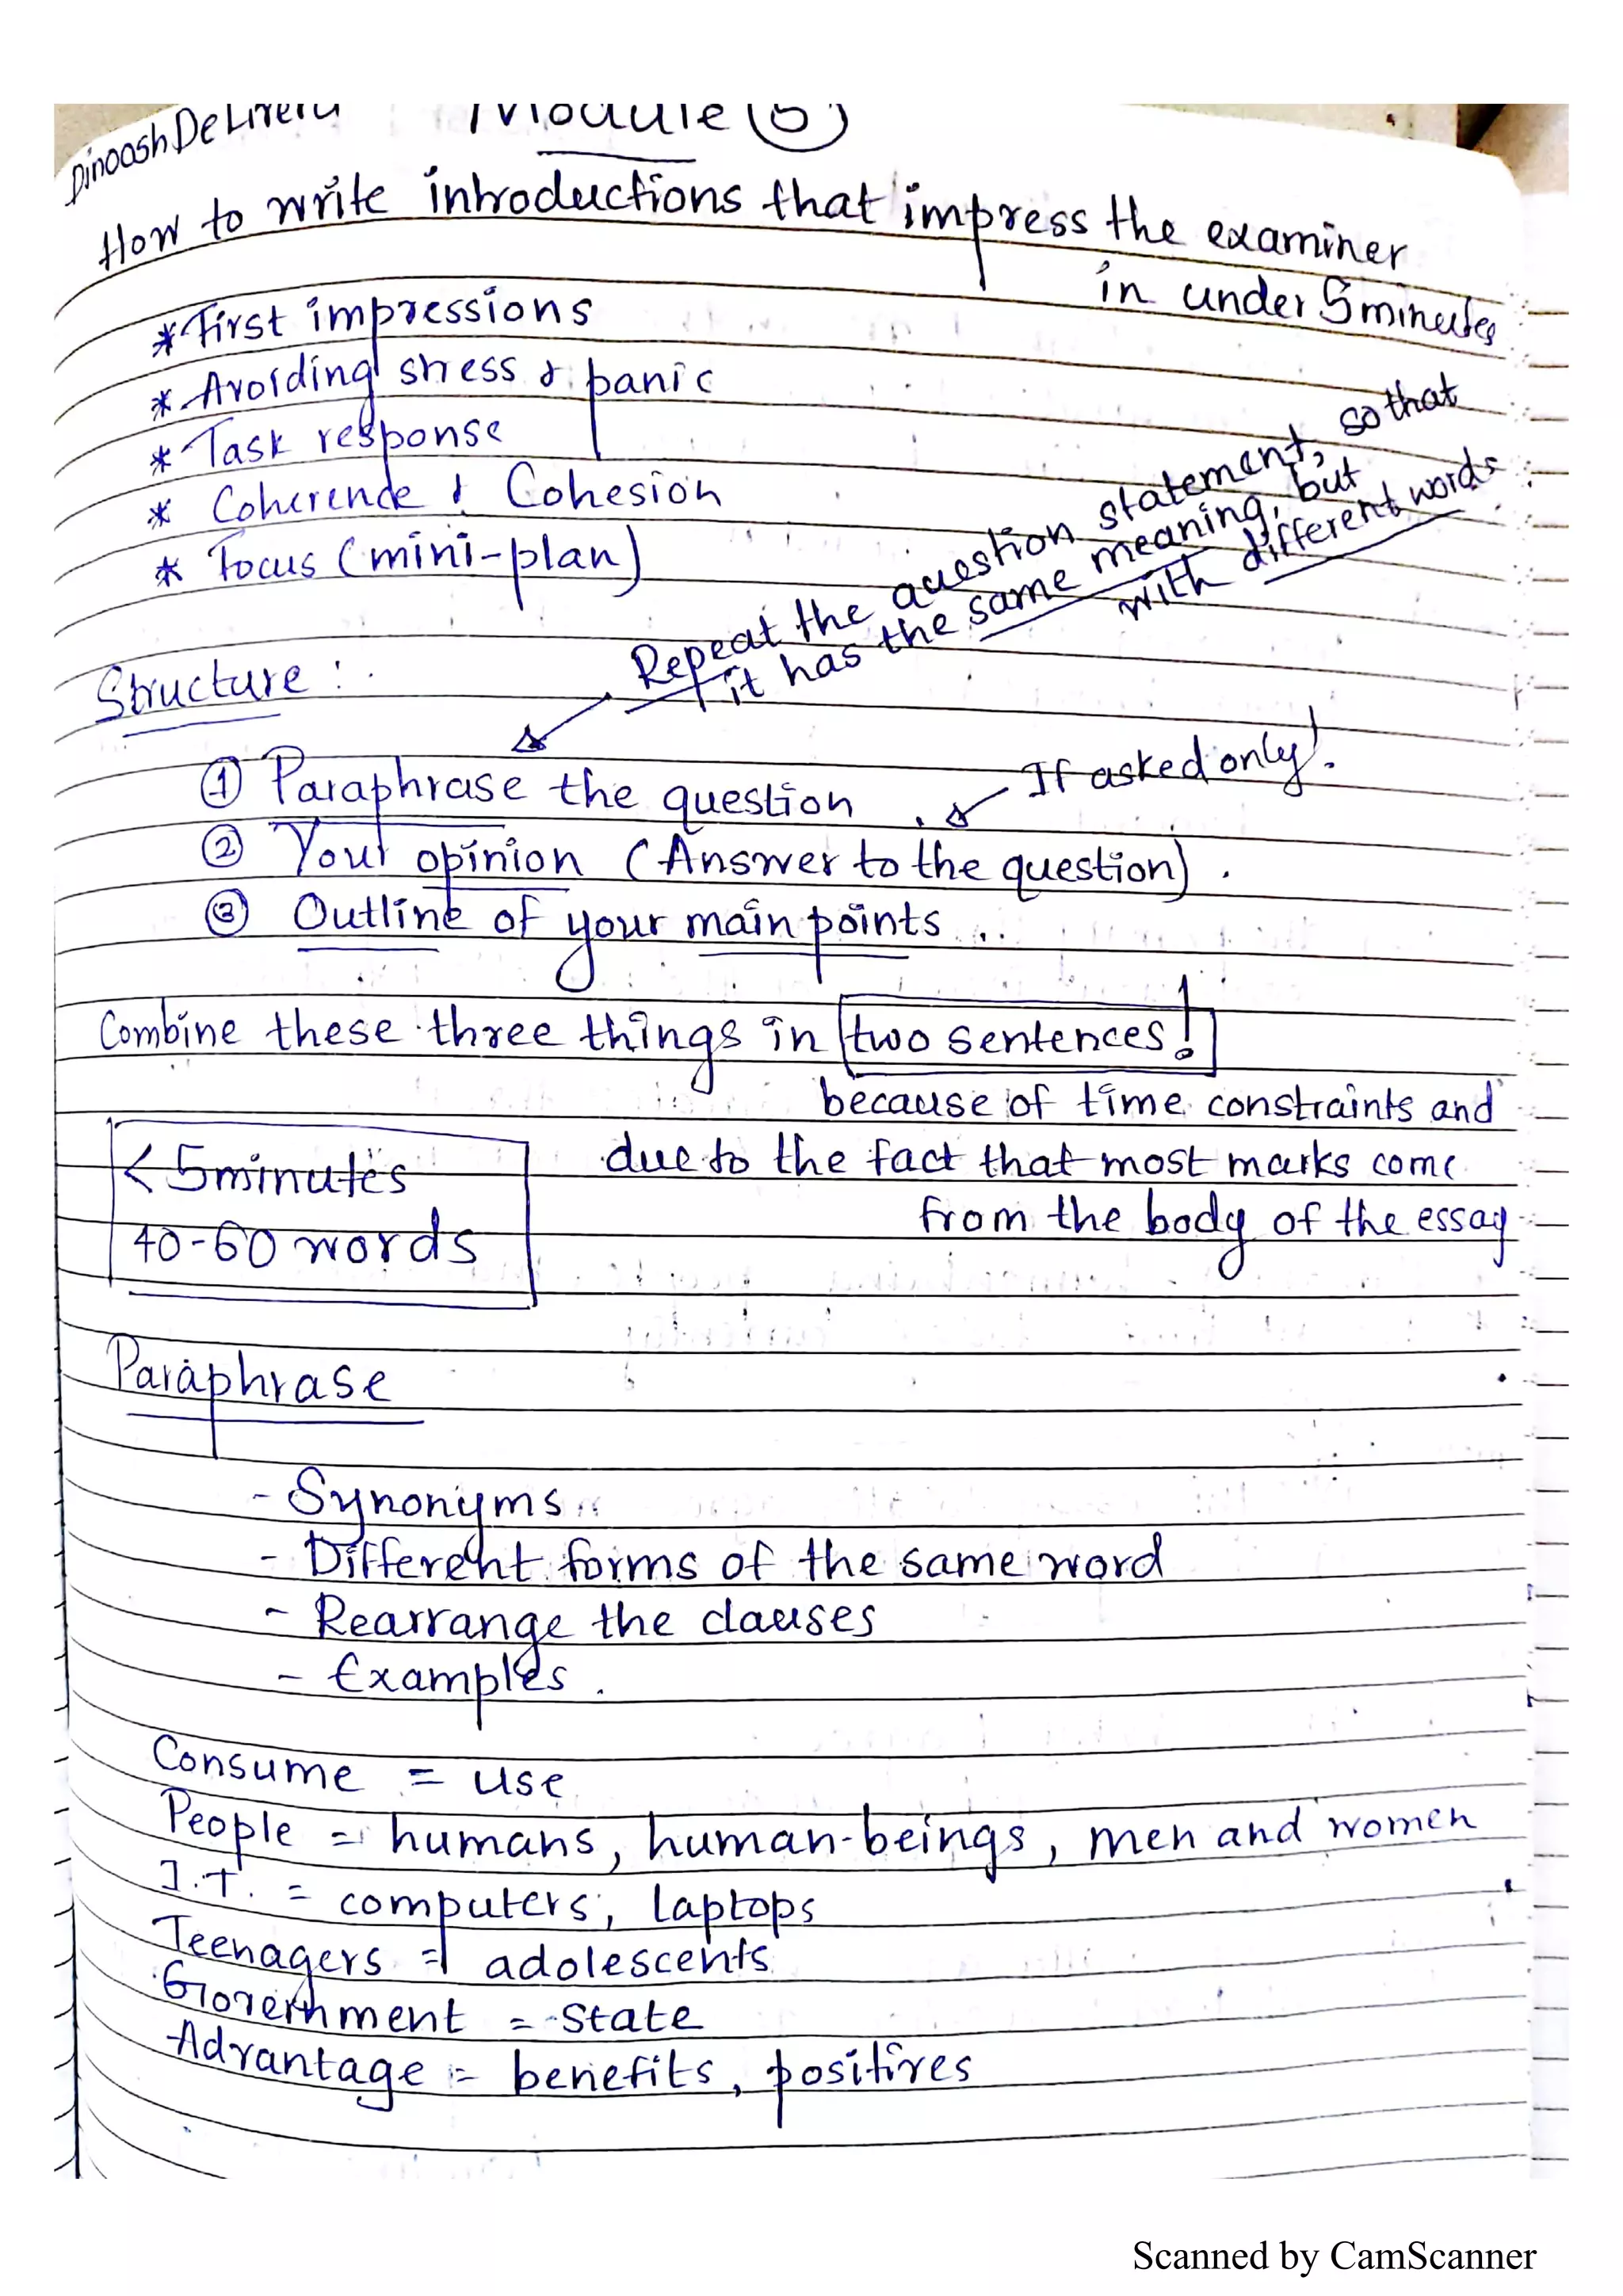 Dinoosh De
Module (5)
How to write introductions that impress the examiner
in under 5 minutes
* First impressions
* Avoiding stress & panic
* Task response
* Coherence & Cohesion
* Focus (mini-plan)
Repeat the question statement, so that
it has the same meaning, but
with different words
Structure :
① Paraphrase the question
If asked only!
② Your opinion (Answer to the question).
③ Outline of your main points
Combine these three things in two sentences!
because of time constraints and
due to the fact that most marks come
from the body of the essay
< 5 minutes
40-60 words
Paraphrase
- Synonyms
- Different forms of the same word
- Rearrange the clauses
- Examples.
Consume = use
People = humans, human-beings, men and women
I.T. = computers, laptops
Teenagers = adolescents
Government = State
Advantage = benefits, positives
Scanned by CamScanner